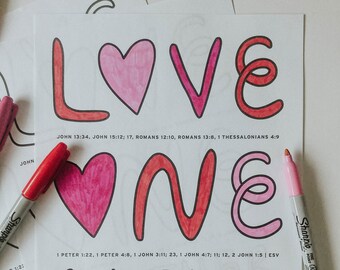 LOVE
JOHN 13:34, JOHN 15:12; 17, ROMANS 12:10, ROMANS 13:8, 1 THESSALONIANS 4:9
ONE
1 PETER 1:22, 1 PETER 4:8, 1 JOHN 3:11; 23, 1 JOHN 4:7; 11; 12, 2 JOHN 1:5 | ESV
Sharpie
Sharpie